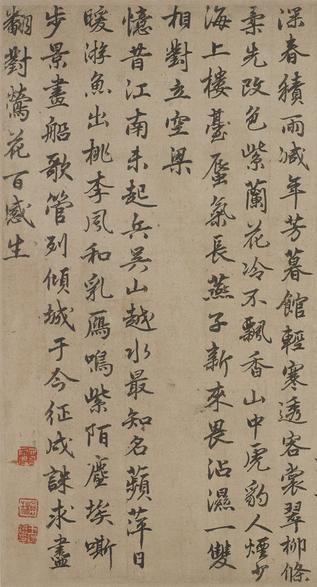 深春積雨減年芳暮館輕寒透客裳翠柳條
柔先改色紫蘭花冷不飄香山中虎豹人煙少
海上樓臺蜃氣長燕子新來畏沾濕一雙
相對立空梁
憶昔江南未起兵吳山越水最知名蘋萍日
暖游魚出桃李風和乳鴈鳴紫陌塵埃嘶
步景畫船歌管列傾城于今征戍誅求盡
翻對鶯花百感生